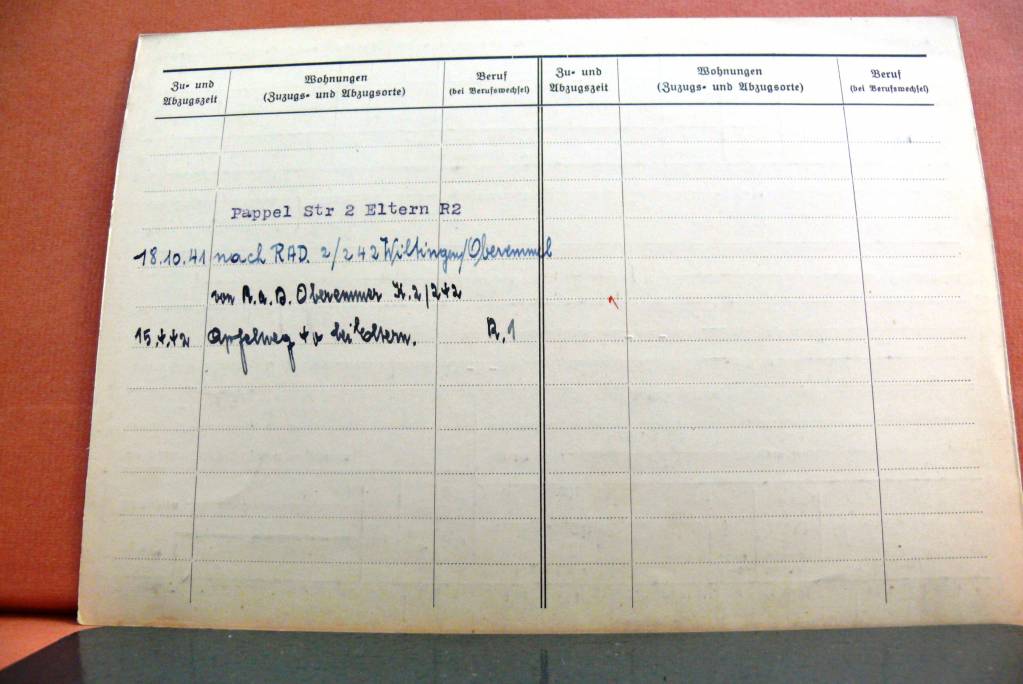 Zu- und Abzugszeit
Wohnungen
(Zuzugs- und Abzugsorte)
Beruf
(bei Berufswechsel)
Zu- und Abzugszeit
Wohnungen
(Zuzugs- und Abzugsorte)
Beruf
(bei Berufswechsel)
Pappel Str 2 Eltern R2
18.10.41 nach RAD. 2/242 Wiltingen/Oberemmel
von R.a.D. Oberemmer K.2/242
15.4.42 Apfelweg bei Eltern. R.1